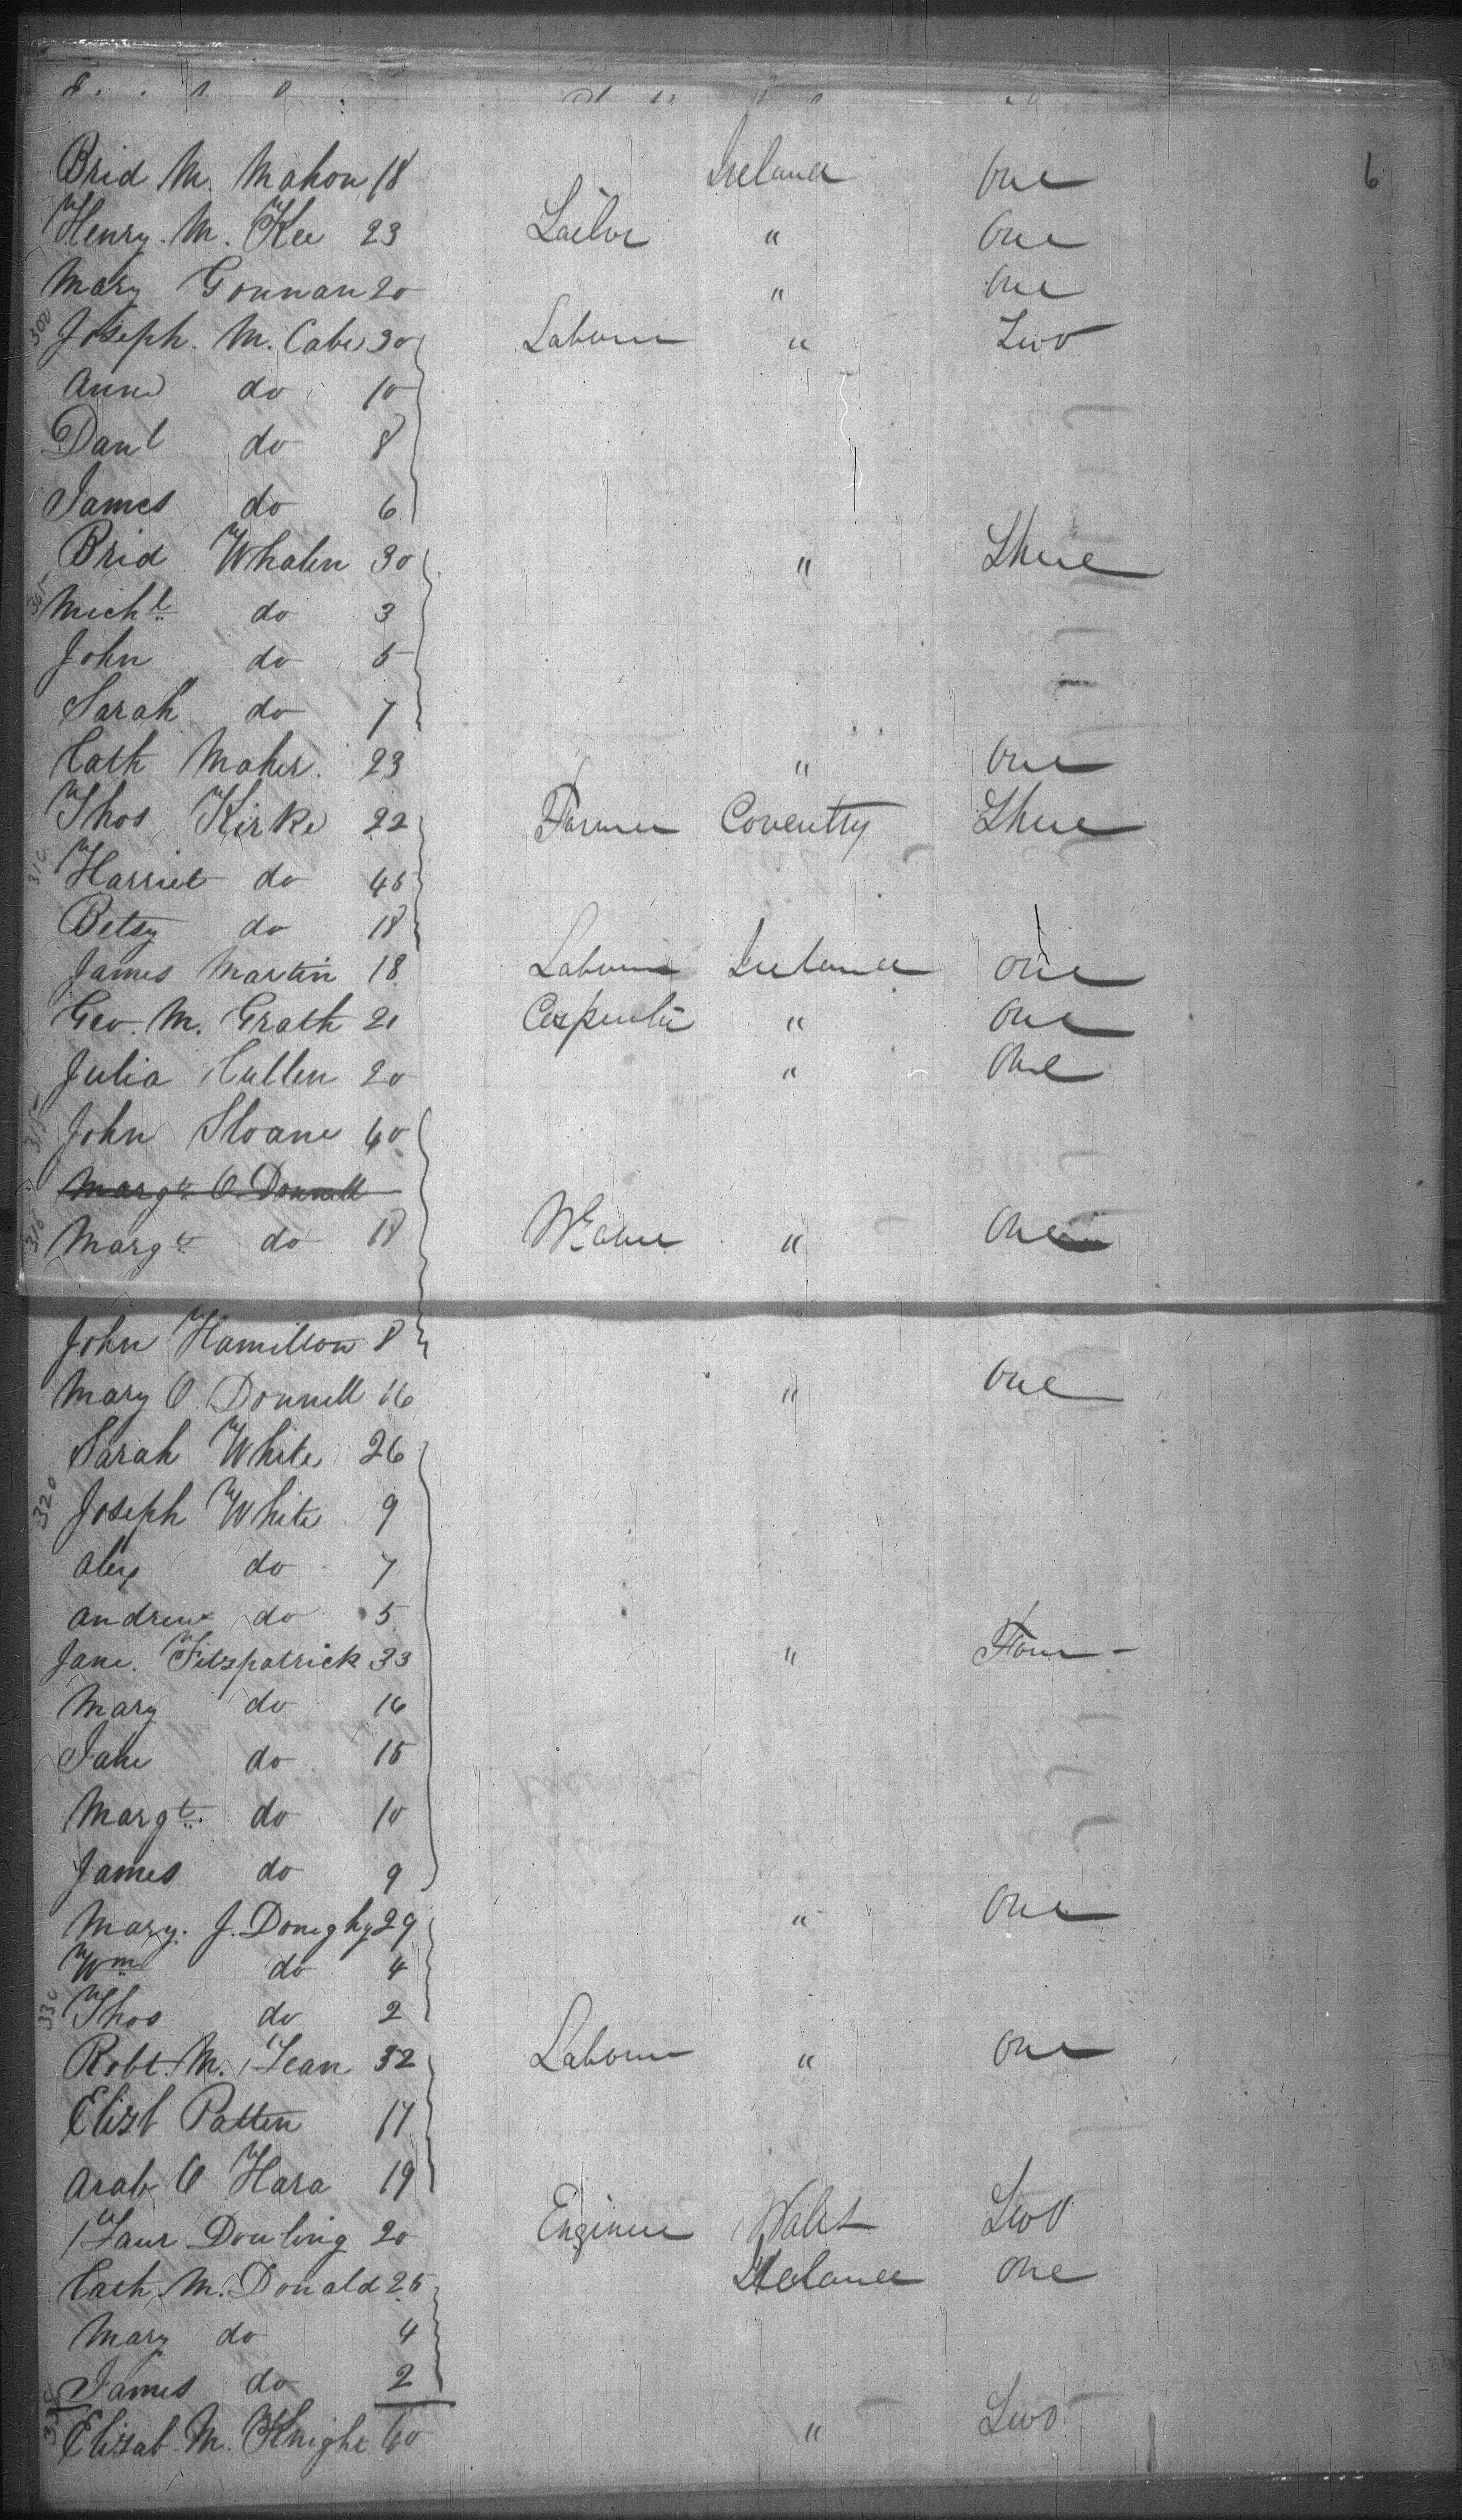 Brid M. Mahon 18 Ireland One 6
Henry. M. Kee 23 Tailor " One
Mary Gonnan 20 " One
300 Joseph. M. Cabe 30 Labourer " Two
Anne do 10
Danl do 8
James do 6
Brid Whalen 30 " Three
305 Michl do 3
John do 5
Sarah do 7
Cath Maher. 23 " One
Thos Kirke 22 Farmer Coventry Three
310 Harriet do 45
Betsy do 18
James Martin 18 Labourer Ireland One
Geo. M. Grath 21 Carpenter " One
Julia Cullen 20 " One
315 John Sloane 60
Margt O. Donnell
316 Margt do 18 Weaver " One
John Hamilton 8
Mary O. Donnell 16 " One
Sarah White 26
320 Joseph White 9
Alex do 7
Andrew do 5
Jane. Fitzpatrick 33 " Four
Mary do 16
Jane do 15
Margt. do 10
James do 9
Mary. J. Doneghy 29 " One
Wm do 4
330 Thos do 2
Robt. M. Lean 32 Labourer " One
Elizb Patten 17
Arab O Hara 19
Laur Douling 20 Engineer Wales Two
Cath. M. Donald 25 Ireland One
Mary do 4
James do 2
Elizab M. Knight 60 " Two